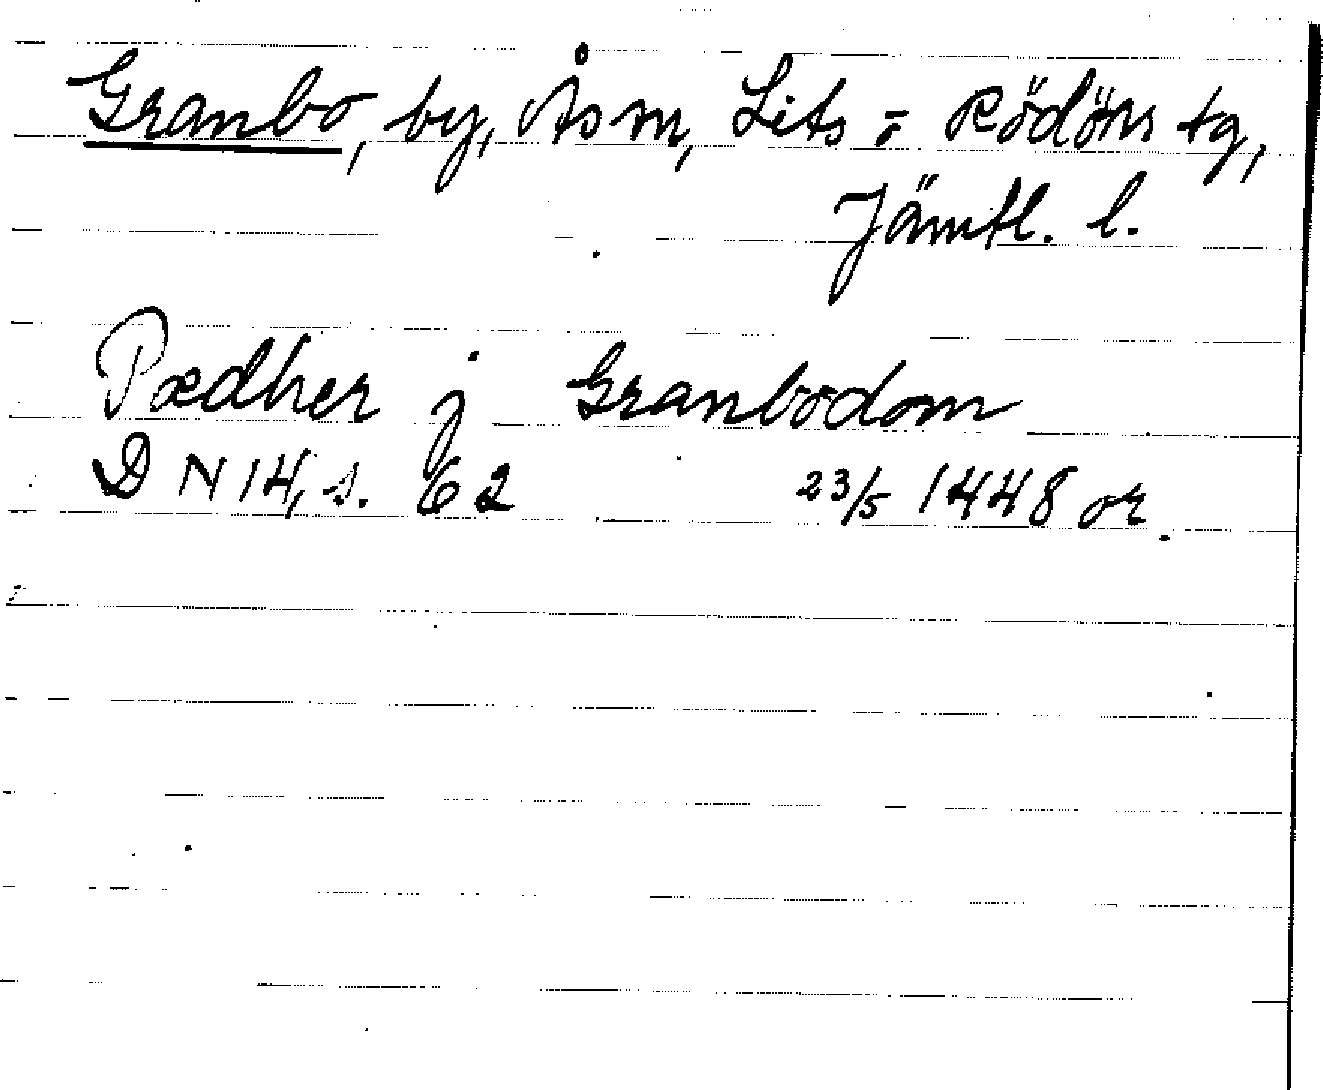 Granbo, by, Ås sn, Lits = Rödöns tg,
Jämtl. l.
Pædher j Granbodom
D N 14, s. 62 23/5 1448 or.